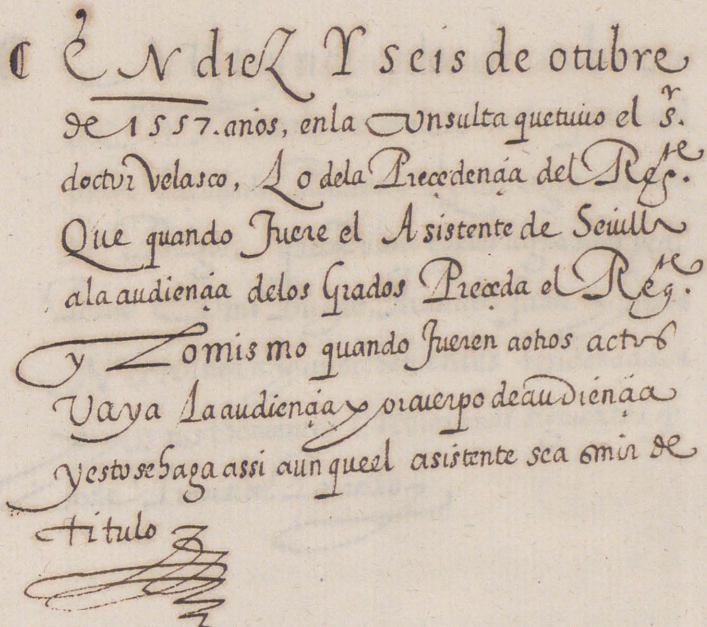 ¶ EN dieZ Y seis de otubre
de 1557. años, enla consulta quetuuo el sr.
doctor Velasco, Lo dela Precedençia del Regte.
Que quando Fuere el Asistente de Seuilla
ala audiençia delos Grados Preceda el Regte.
y Lomismo quando Fueren aotros actos
Vaya La audiençia por cuerpo de audiençia
yestosehaga assi aunqueel asistente sea omбre de
titulo